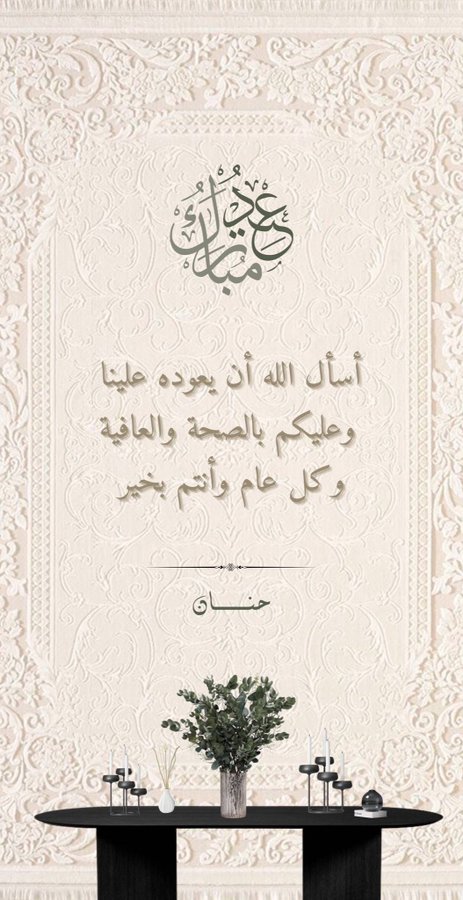 عِيدُ
مُبَارَك
أسأل الله أن يعوده علينا
وعليكم بالصحة والعافية
وكل عام وأنتم بخير
حنـــان